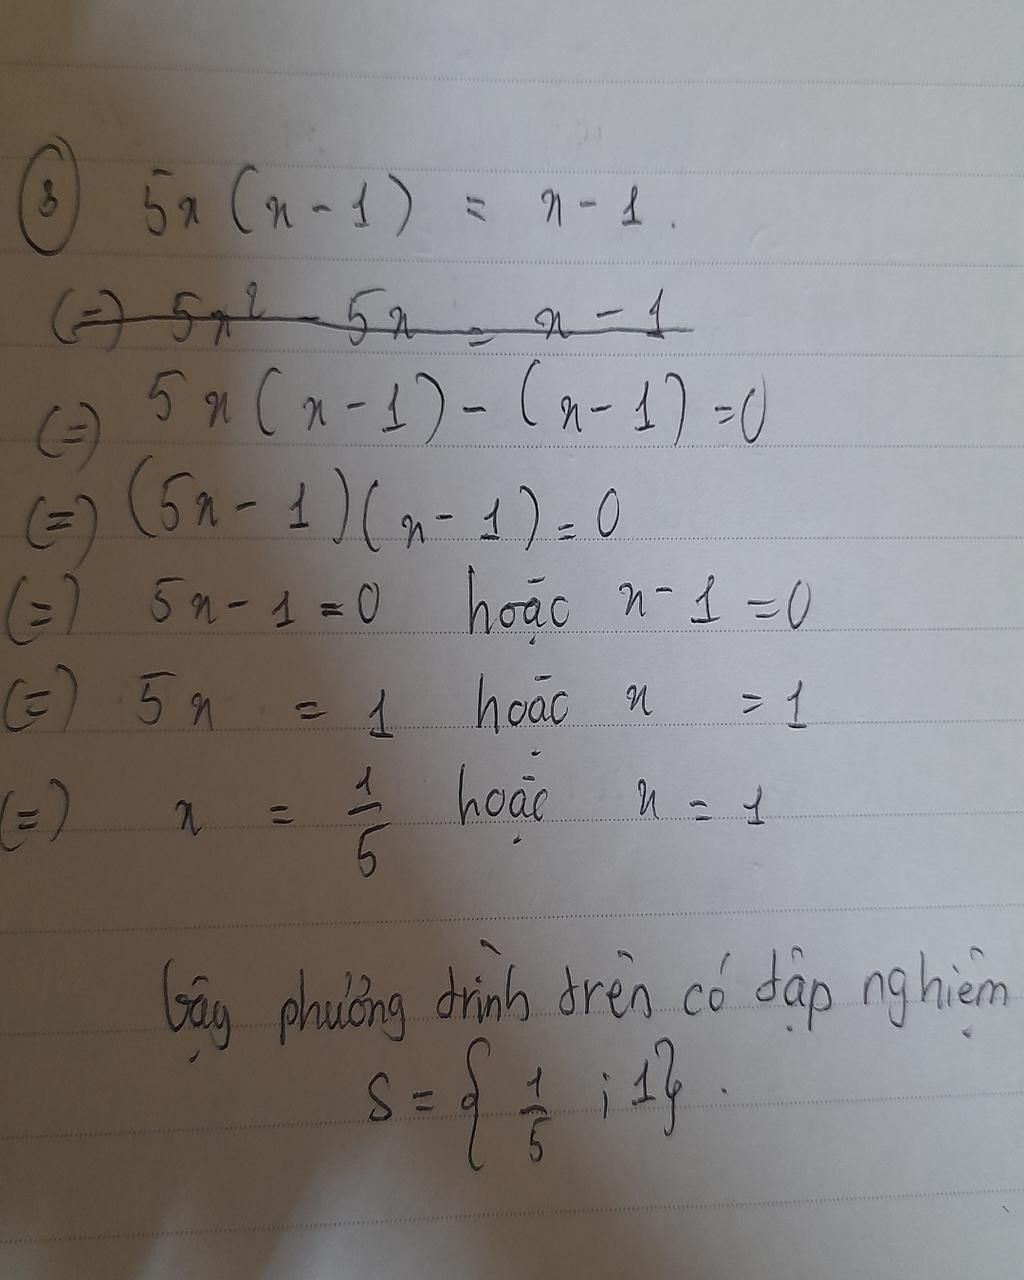 ③ 5x (x - 1) = x - 1.
(=) 5x² - 5x = x - 1
(=) 5x (x - 1) - (x - 1) = 0
(=) (5x - 1)(x - 1) = 0
(=) 5x - 1 = 0 hoặc x - 1 = 0
(=) 5x = 1 hoặc x = 1
(=) x = 1/5 hoặc x = 1
Vậy phương trình trên có tập nghiệm
S = { 1/5 ; 1} .